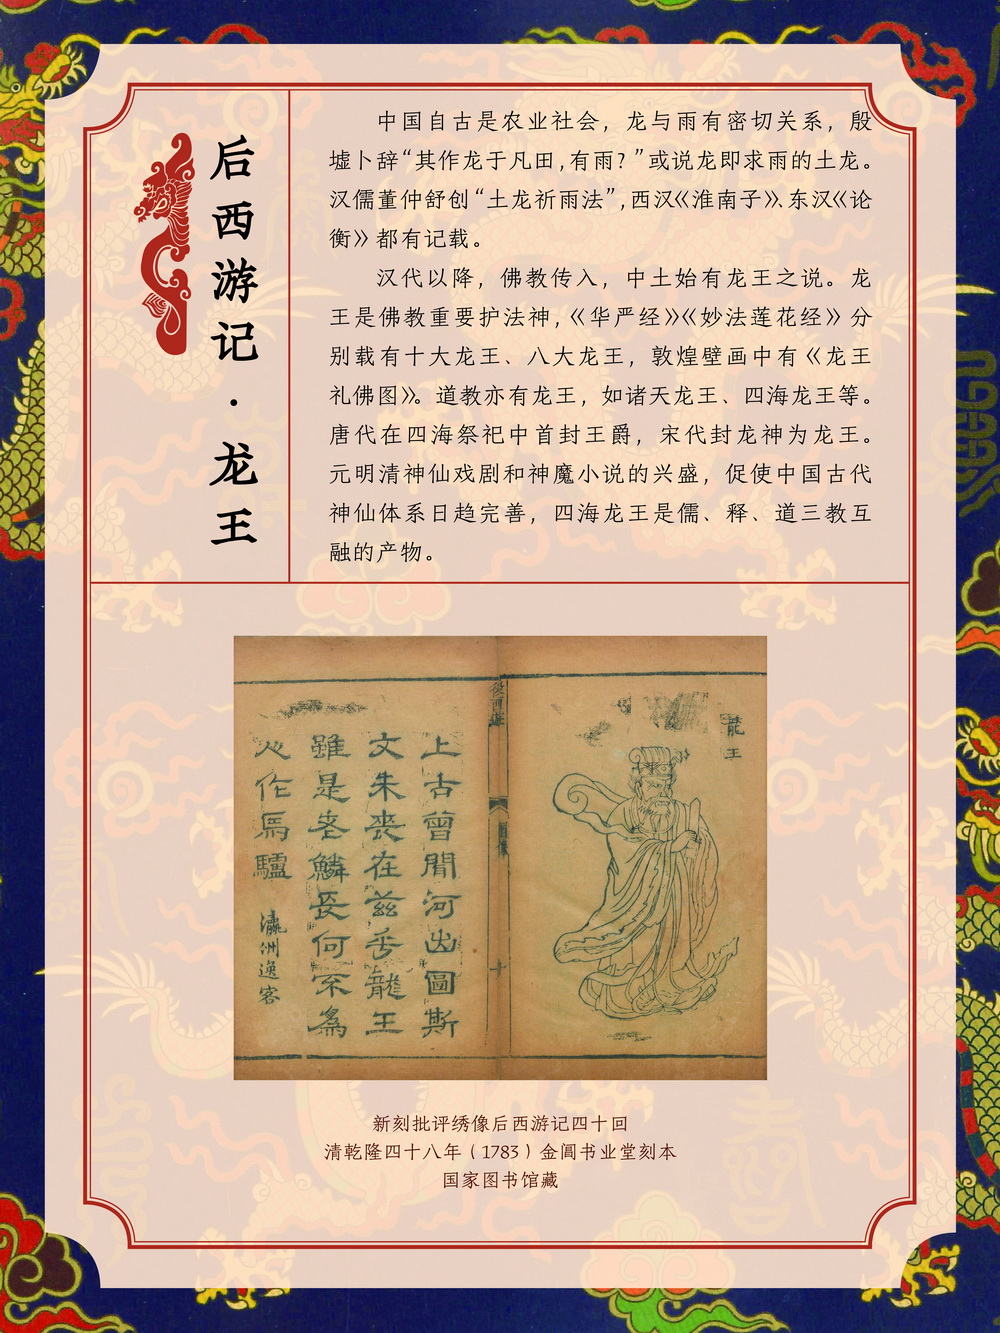 后西游记·龙王
中国自古是农业社会，龙与雨有密切关系，殷
墟卜辞“其作龙于凡田,有雨？”或说龙即求雨的土龙。
汉儒董仲舒创“土龙祈雨法”,西汉《淮南子》、东汉《论
衡》都有记载。
汉代以降，佛教传入，中土始有龙王之说。龙
王是佛教重要护法神,《华严经》《妙法莲花经》分
别载有十大龙王、八大龙王，敦煌壁画中有《龙王
礼佛图》。道教亦有龙王，如诸天龙王、四海龙王等。
唐代在四海祭祀中首封王爵，宋代封龙神为龙王。
元明清神仙戏剧和神魔小说的兴盛，促使中国古代
神仙体系日趋完善，四海龙王是儒、释、道三教互
融的产物。
龍王
上古曾聞河出圖斯
文未喪在茲乎龍王
雖是老鱗長何不為
心作馬驢
瀛洲逸客
新刻批评绣像后西游记四十回
清乾隆四十八年（1783）金阊书业堂刻本
国家图书馆藏